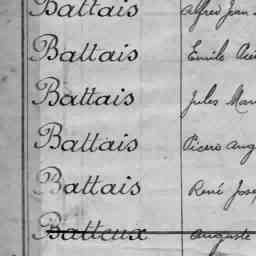 Battais Alfred Jean
Battais Emile
Battais Jules
Battais
Battais René
Batteux Auguste